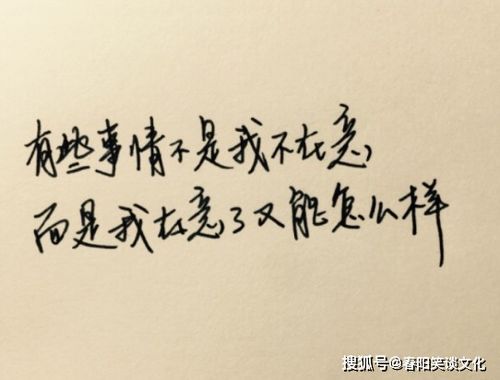 有些事情不是我不在意,
而是我在意了又能怎么样
搜狐号@春阳笑谈文化